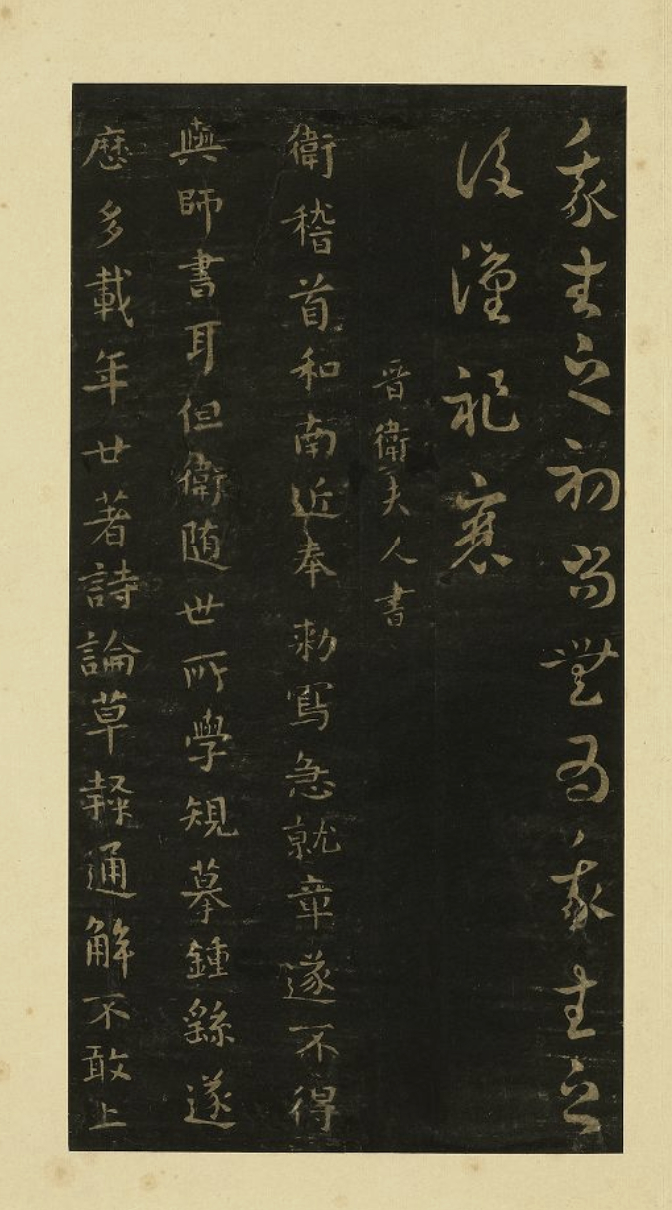 我生之初尚無為我生之
後漢祚衰
晉衛夫人書
衛稽首和南近奉勅寫急就章遂不得
與師書耳但衛随世所學規摹鍾繇遂
歷多載年廿著詩論草隸通解不敢上